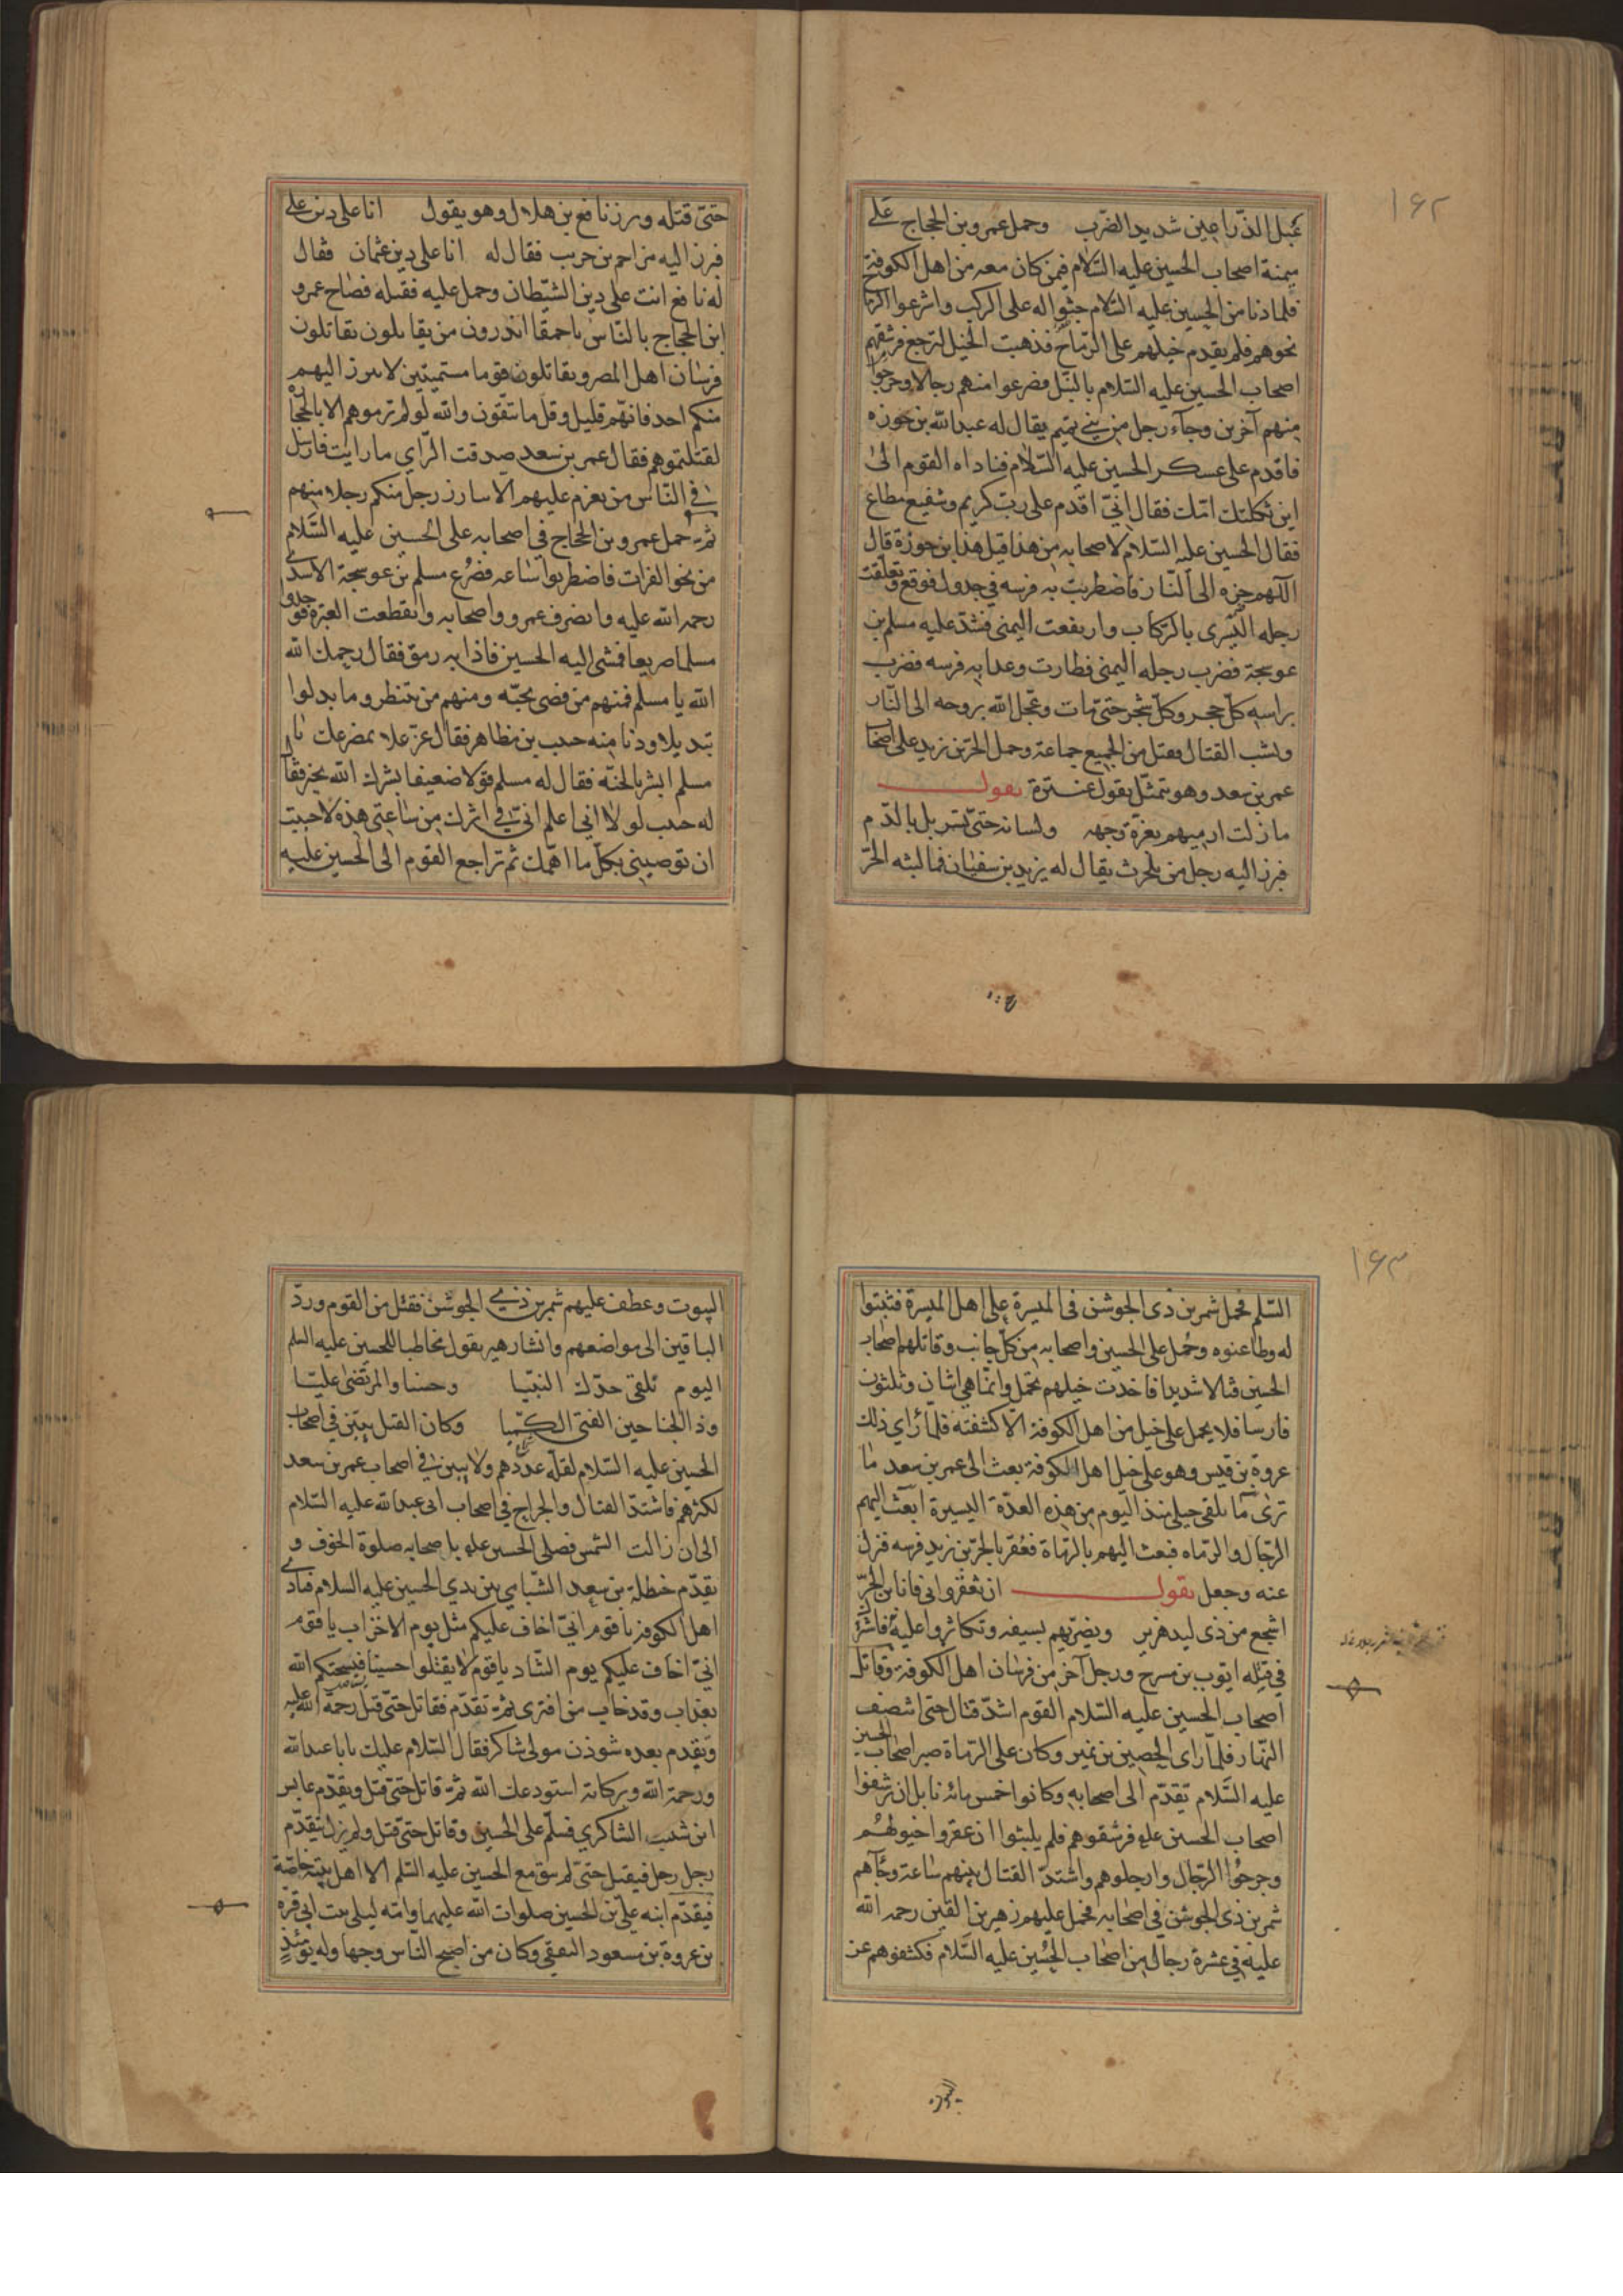 ١٦٢
عبل الذراعين شديد الضرب وحمل عمرو بن الحجاج على
ميمنة اصحاب الحسين عليه السلام فيمن كان معه من اهل الكوفة
فلما دنا من الحسين عليه السلام جثوا له على الركب واشرعوا الرماح
نحوهم فلم يقدم خيلهم على الرماح فذهبت الخيل لترجع فرشقهم
اصحاب الحسين عليه السلام بالنبل فصرعوا منهم رجالا وجرحوا
منهم آخرين وجآء رجل من بني تميم يقال له عبد الله بن حوزه
فاقدم على عسكر الحسين عليه السلام فناداه القوم الى
اين ثكلتك امك فقال اني اقدم على رب كريم وشفيع مطاع
فقال الحسين عليه السلام لاصحابه من هذا قيل هذا ابن حوزة قال
اللهم حزه الى النار فاضطربت به فرسه في جدول فوقع وتعلقت
رجله اليسرى بالركاب وارتفعت اليمنى فشد عليه مسلم بن
عوسجة فضرب رجله اليمنى فطارت وعدا به فرسه فضرب
براسه كل حجر وكل شجر حتى مات وعجل الله بروحه الى النار
ونشب القتال فقتل من الجميع جماعة وحمل الحر بن يزيد على اصحاب
عمر بن سعد وهو يتمثل بقول عنترة يقول
ما زلت ارميهم بغرة وجهه ولبانه حتى تسربل بالدم
فبرز اليه رجل من بلحرث يقال له يزيد بن سفيان فما لبثه الحر
حتى قتله وبرز نافع بن هلال وهو يقول انا على دين على
فبرز اليه مزاحم بن حريب فقال له انا على دين عثمان فقال
له نافع انت على دين الشيطان وحمل عليه فقتله فصاح عمرو
ابن الحجاج بالناس يا حمقا اتدرون من يقاتلون تقاتلون
فرسان اهل المصر وتقاتلون قوما مستميتين لا يبرز اليهم
منكم احد فانهم قليل وقل ما تتقون والله لو لم ترموهم الا بالحجارة
لقتلتموهم فقال عمر بن سعد صدقت الراي ما رايت فارسل
في الناس من يعزم عليهم الا يبارز رجل منكم رجلا منهم
ثم حمل عمرو بن الحجاج في اصحابه على الحسين عليه السلام
من نحو الفرات فاضطربوا ساعه فصرع مسلم بن عوسجة الاسدي
رحمه الله عليه وانصرف عمرو واصحابه وانقطعت الغبرة فوجدوا
مسلما صريعا فمشى اليه الحسين فاذا به رمق فقال رحمك الله
الله يا مسلم فمنهم من قضى نحبه ومنهم من ينتظر وما بدلوا
تبديلا ودنا منه حبيب بن مظاهر فقال عز على مصرعك يا
مسلم ابشر بالجنة فقال له مسلم قولا ضعيفا بشرك الله بخير فقال
له حبيب لولا اني اعلم اني في اثرك من ساعتي هذه لاحببت
ان توصيني بكل ما اهمك ثم تراجع القوم الى الحسين عليه
١٦٣
السلم فحمل شمر بن ذي الجوشن في الميسرة على اهل الميسرة فثبتوا
له وطاعنوه وحمل على الحسين واصحابه من كل جانب وقاتلهم اصحاب
الحسين قتالا شديدا فاخذت خيلهم تحمل وانما هي اثنان وثلثون
فارسا فلا يحمل على خيل من اهل الكوفة الا كشفته فلما راي ذلك
عروة بن قيس وهو على خيل اهل الكوفة بعث الى عمر بن سعد ما
ترى ما يلقى خيلي منذ اليوم من هذه العدة اليسيرة ابعث اليهم
الرجال والرماه فبعث اليهم بالرماة فعقر بالحر بن يزيد فرسه فنزل
عنه وجعل يقول ان تعقروا بي فانا ابن الحر
اشجع من ذي لبد هزبر ويضربهم بسيفه وتكاثروا عليه فاشترك
في قتله ايوب بن مسرح ورجل آخر من فرسان اهل الكوفة وقاتل
اصحاب الحسين عليه السلام القوم اشد قتال حتى انتصف
النهار فلما راى الحصين بن نمير وكان على الرماة صبر اصحاب الحسين
عليه السلام تقدم الى اصحابه وكانوا خمس مائة نابل ان يرشقوا
اصحاب الحسين عليه فرشقوهم فلم يلبثوا ان عقروا خيولهم
وجرحوا الرجال وارجلوهم واشتد القتال بينهم ساعة وجآءهم
شمر بن ذي الجوشن في اصحابه فحمل عليهم زهير بن القين رحمه الله
عليه في عشرة رجال من اصحاب الحسين عليه السلام فكشفوهم عن
البيوت
البيوت وعطف عليهم شمر بن ذي الجوشن فقتل من القوم ورد
الباقين الى مواضعهم وانشا زهير يقول مخاطبا للحسين عليه السلم
اليوم تلقى جدك النبيا وحسنا والمرتضى عليا
وذا الجناحين الفتى الكميا وكان القتل يبين في اصحاب
الحسين عليه السلام لقلة عددهم ولا يبين في اصحاب عمر بن سعد
لكثرهم فاشتد القتال والجراح في اصحاب ابي عبد الله عليه السلام
الى ان زالت الشمس فصلى الحسين عليه باصحابه صلوة الخوف و
تقدم حنظلة بن سعد الشبامي بين يدي الحسين عليه السلام فنادى
اهل الكوفة يا قوم اني اخاف عليكم مثل يوم الاحزاب يا قوم
اني اخاف عليكم يوم التناد يا قوم لا يقتلوا حسينا فيسحتكم الله
بعذاب وقد خاب من افترى ثم تقدم فقاتل حتى قتل رحمة الله عليه
وتقدم بعده شوذن مولى شاكر فقال السلام عليك يا با عبد الله
ورحمة الله وبركاته استودعك الله ثم قاتل حتى قتل وتقدم عابس
ابن شبيب الشاكري فسلم على الحسين وقاتل حتى قتل ولم يزل يتقدم
رجل رجل فيقتل حتى لم يبق مع الحسين عليه السلم الا اهل بيته خاصة
فيقدم ابنه علي بن الحسين صلوات الله عليهما وامه ليلى بنت ابي قرة
بن عروة بن مسعود الثقفي وكان من اصبح الناس وجها وله يومئذ